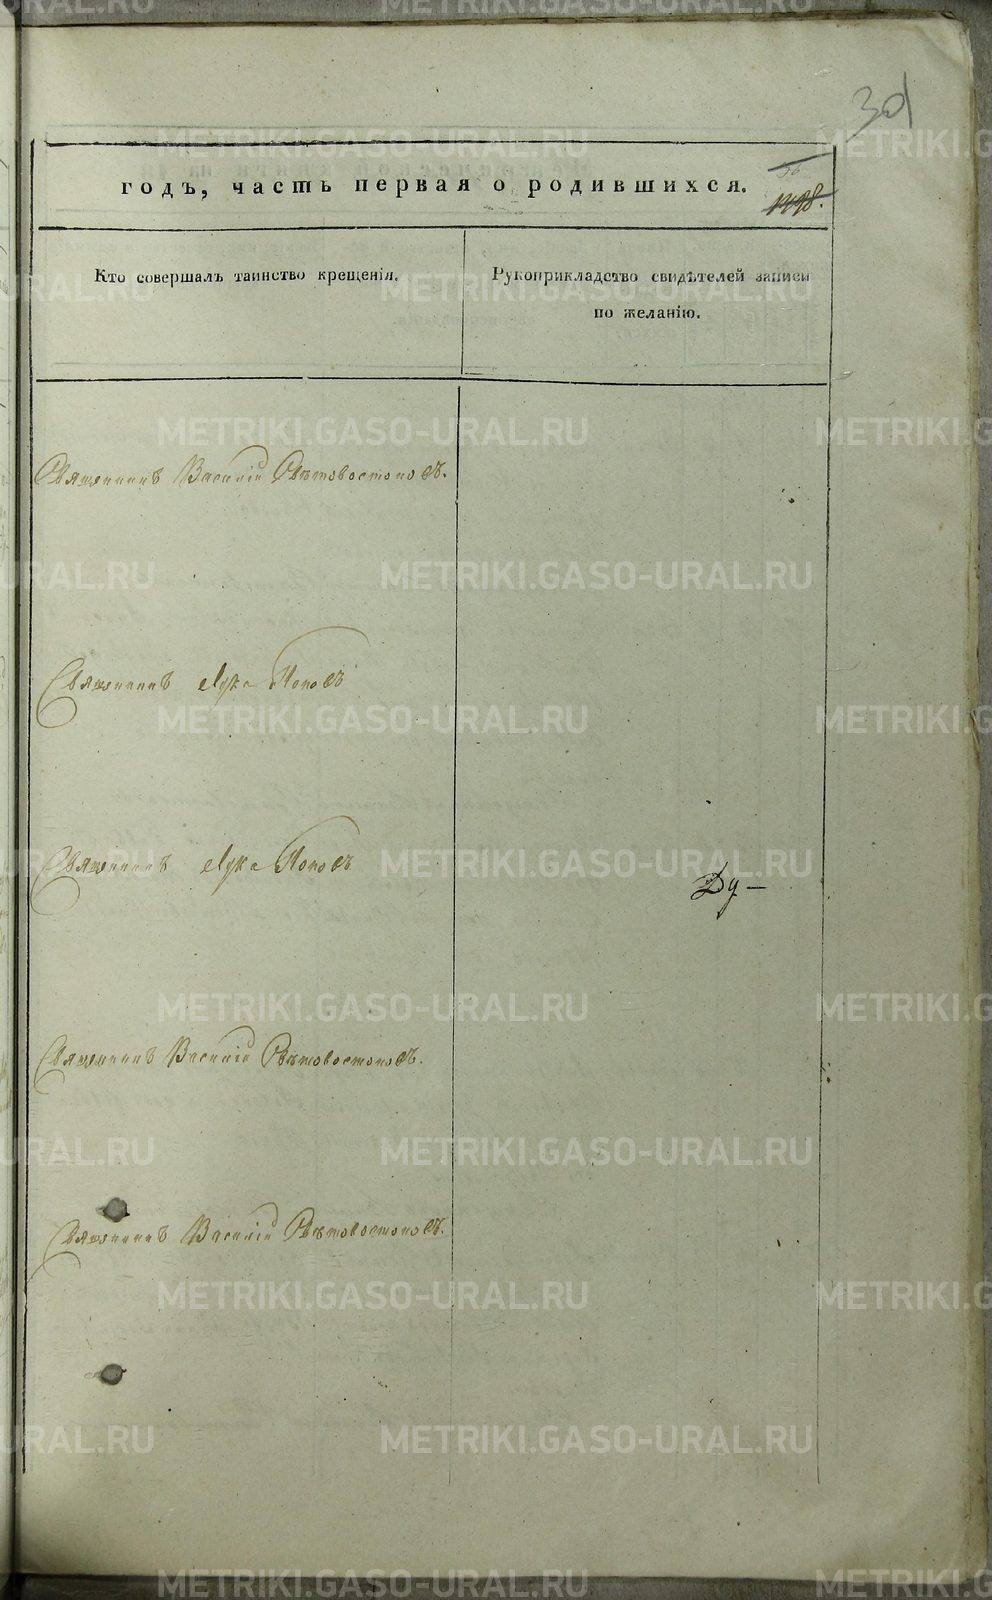 30
годъ, часть первая о родившихся.
1498.
Кто совершалъ таинство крещенія.
Рукоприкладство свидѣтелей записи
по желанію.
Священникъ Василій Свѣтовостоковъ.
Священникъ Лука Поповъ
Священникъ Лука Поповъ
Ду—
Священникъ Василій Свѣтовостоковъ.
Священникъ Василій Свѣтовостоковъ.
METRIKI.GASO-URAL.RU